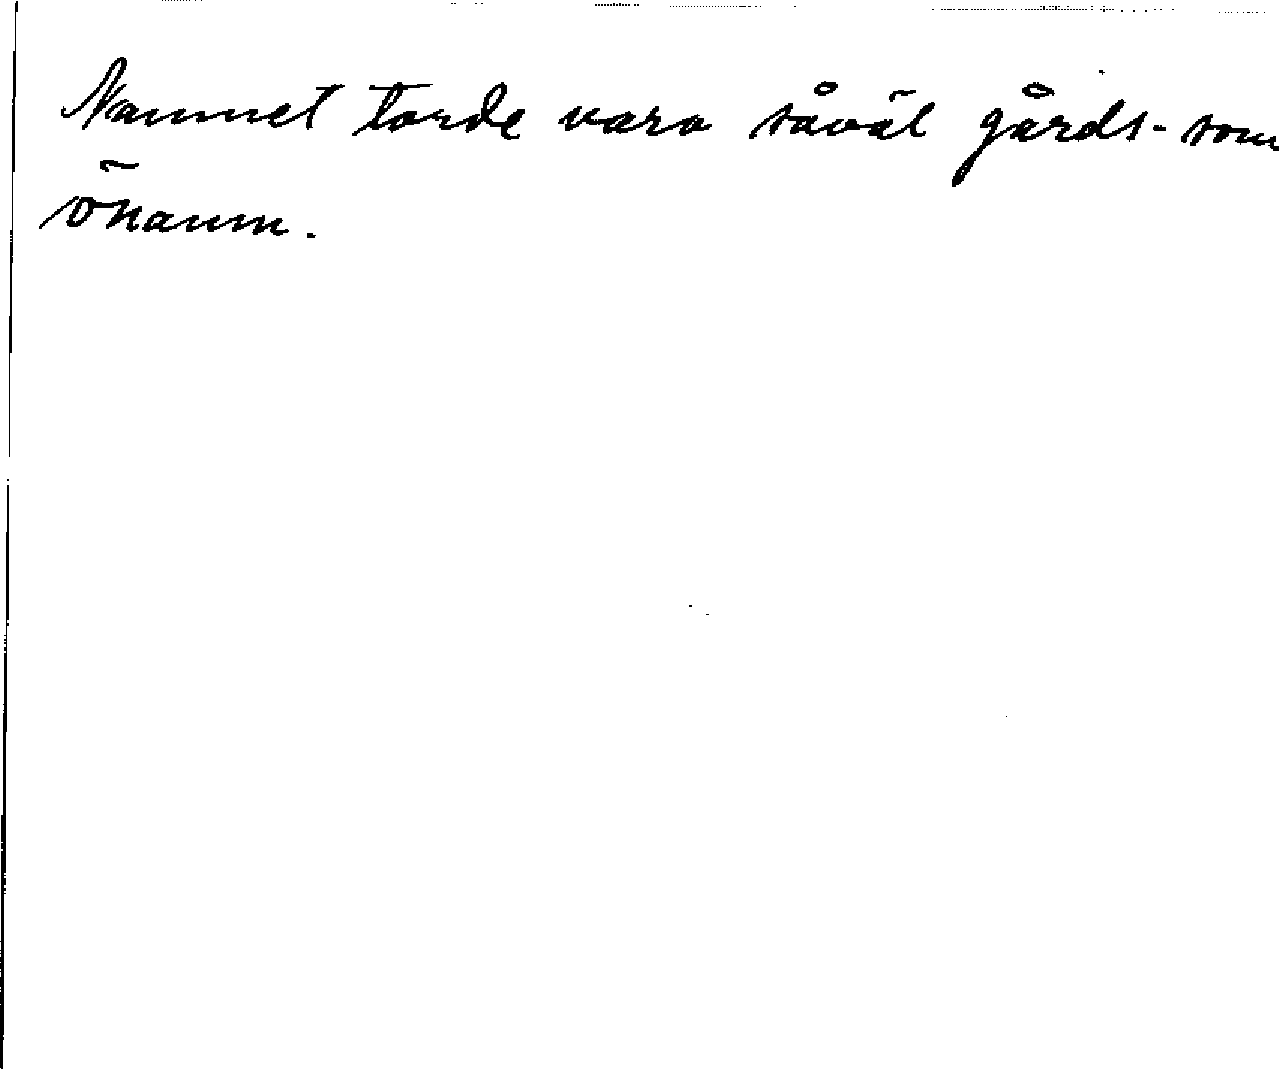 Namnet torde vara såväl gårds- som
önamn.